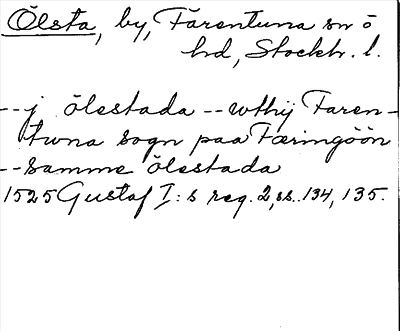 Ölsta, by, Färentuna sn o
hd, Stockh. l.
--j ölestada -- wthij Faren-
twna sogn paa Færingöön
--samme ölestada
1525 Gustaf I:s reg. 2, ss. 134, 135.